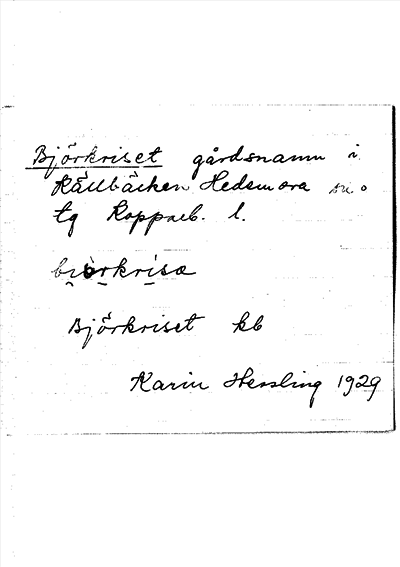 Björkriset gårdsnamn i
Källbäcken Hedemora sn o
tg Kopparb. l.
bi̯örkrisa
Björkriset kb
Karin Hessling 1929